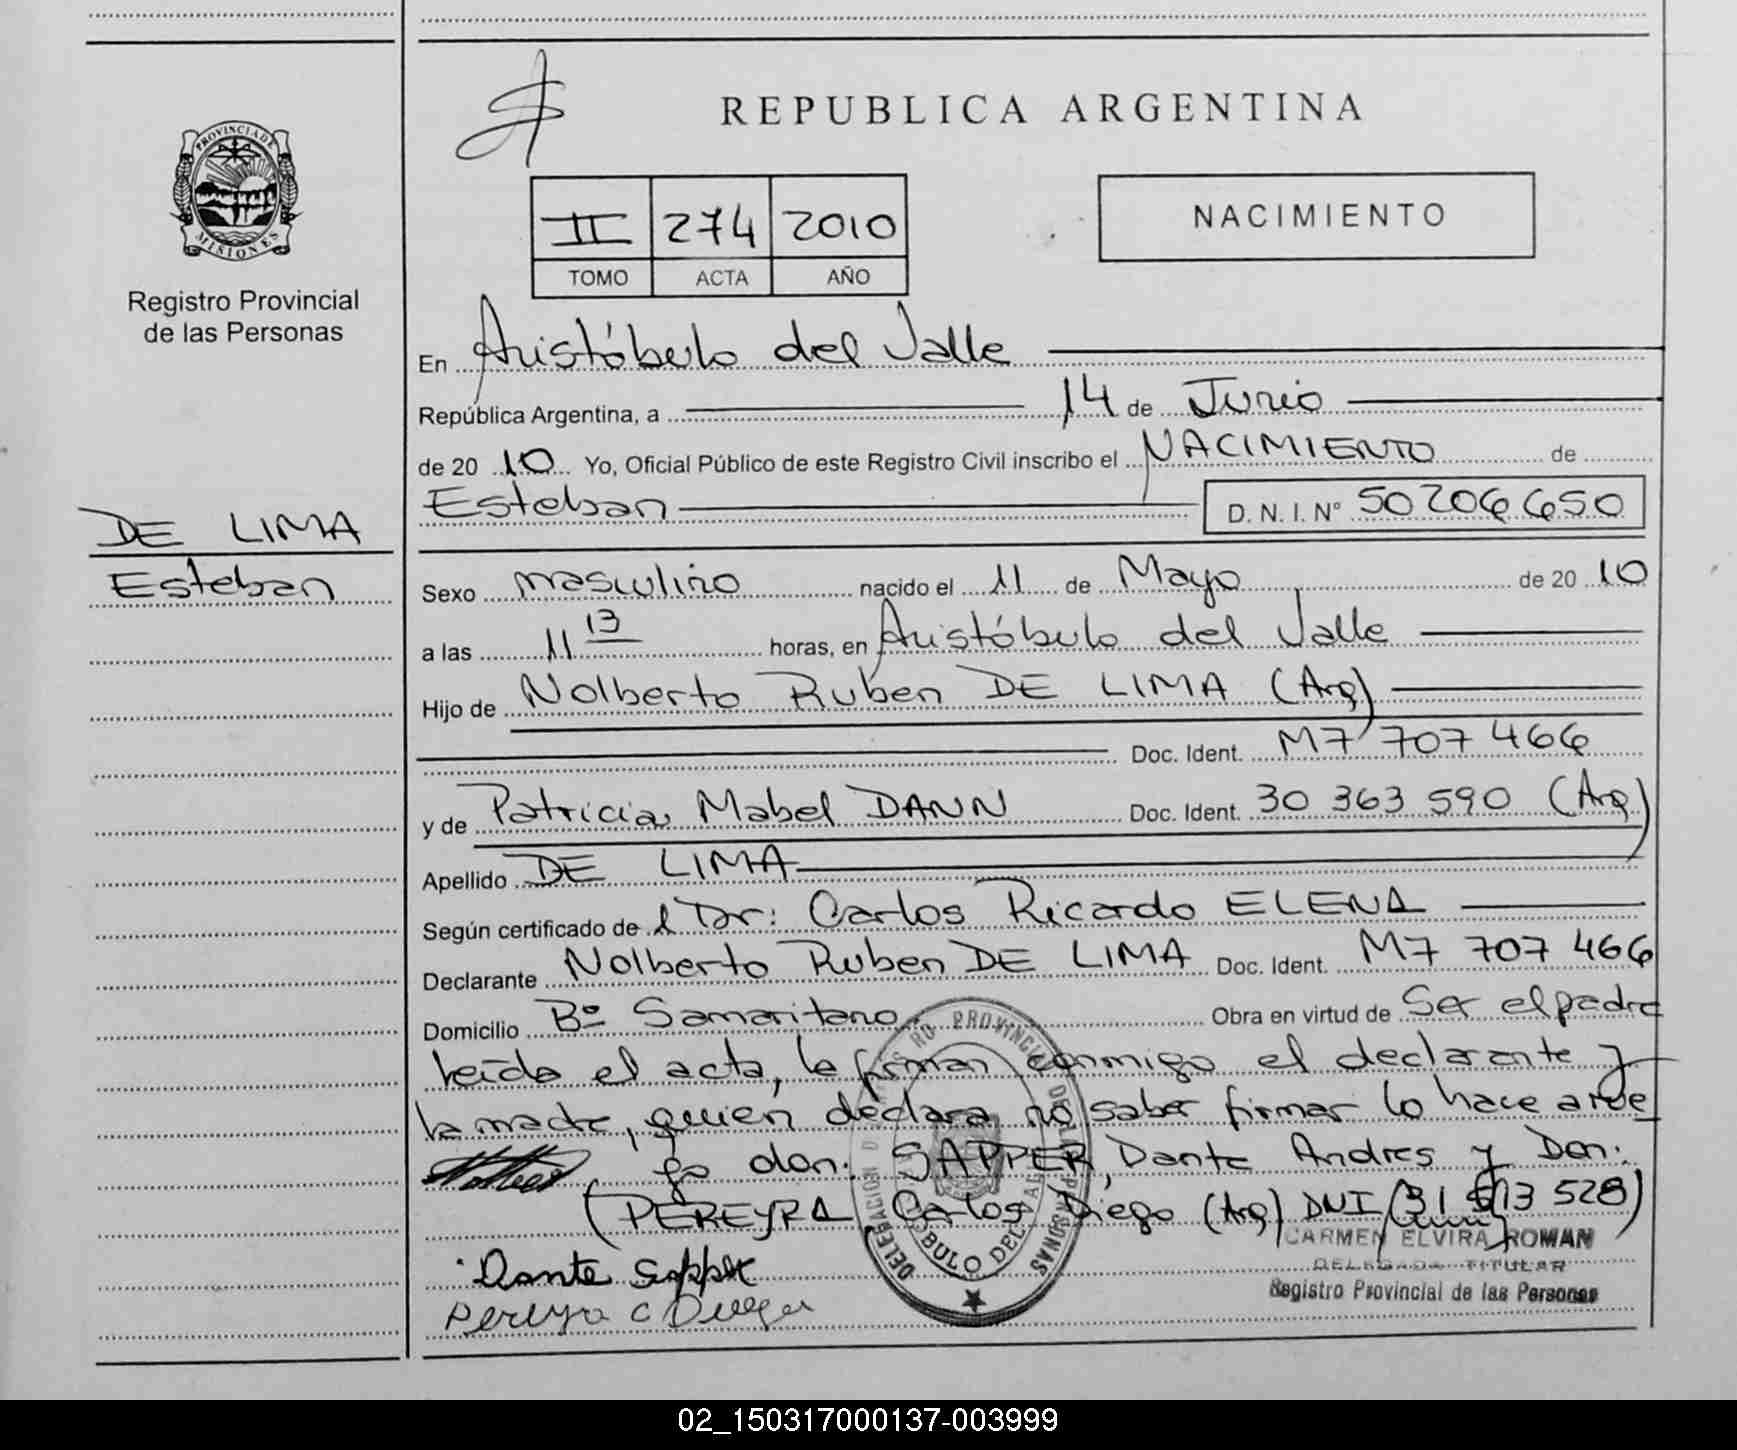 REPUBLICA ARGENTINA
II 274 2010
TOMO ACTA AÑO
NACIMIENTO
PROVINCIA DE
MISIONES
Registro Provincial
de las Personas
DE LIMA
Esteban
En Aristóbulo del Valle
República Argentina, a 14 de Junio
de 20 10 Yo, Oficial Público de este Registro Civil inscribo el NACIMIENTO de
Esteban D. N. I. N° 50206650
Sexo masculino nacido el 11 de Mayo de 20 10
a las 11 13 horas, en Aristóbulo del Valle
Hijo de Nolberto Ruben DE LIMA (Arg)
Doc. Ident. M7 707 466
y de Patricia Mabel DANN Doc. Ident. 30 363 590 (Arg)
Apellido DE LIMA
Según certificado de l Dr: Carlos Ricardo ELENA
Declarante Nolberto Ruben DE LIMA Doc. Ident. M7 707 466
Domicilio Bº Samaritano Obra en virtud de Ser el padre
leída el acta, la firman conmigo el declarante y
la madre, quien declara no saber firmar lo hace a rue
go don: SAPPER, Dante Andres y Don:
(PEREYRA Carlos Diego (Arg) DNI 31 513 528)
CARMEN ELVIRA ROMAN
DELEGADA TITULAR
Registro Provincial de las Personas
Dante Sapper
Pereyra C Diego
02_150317000137-003999